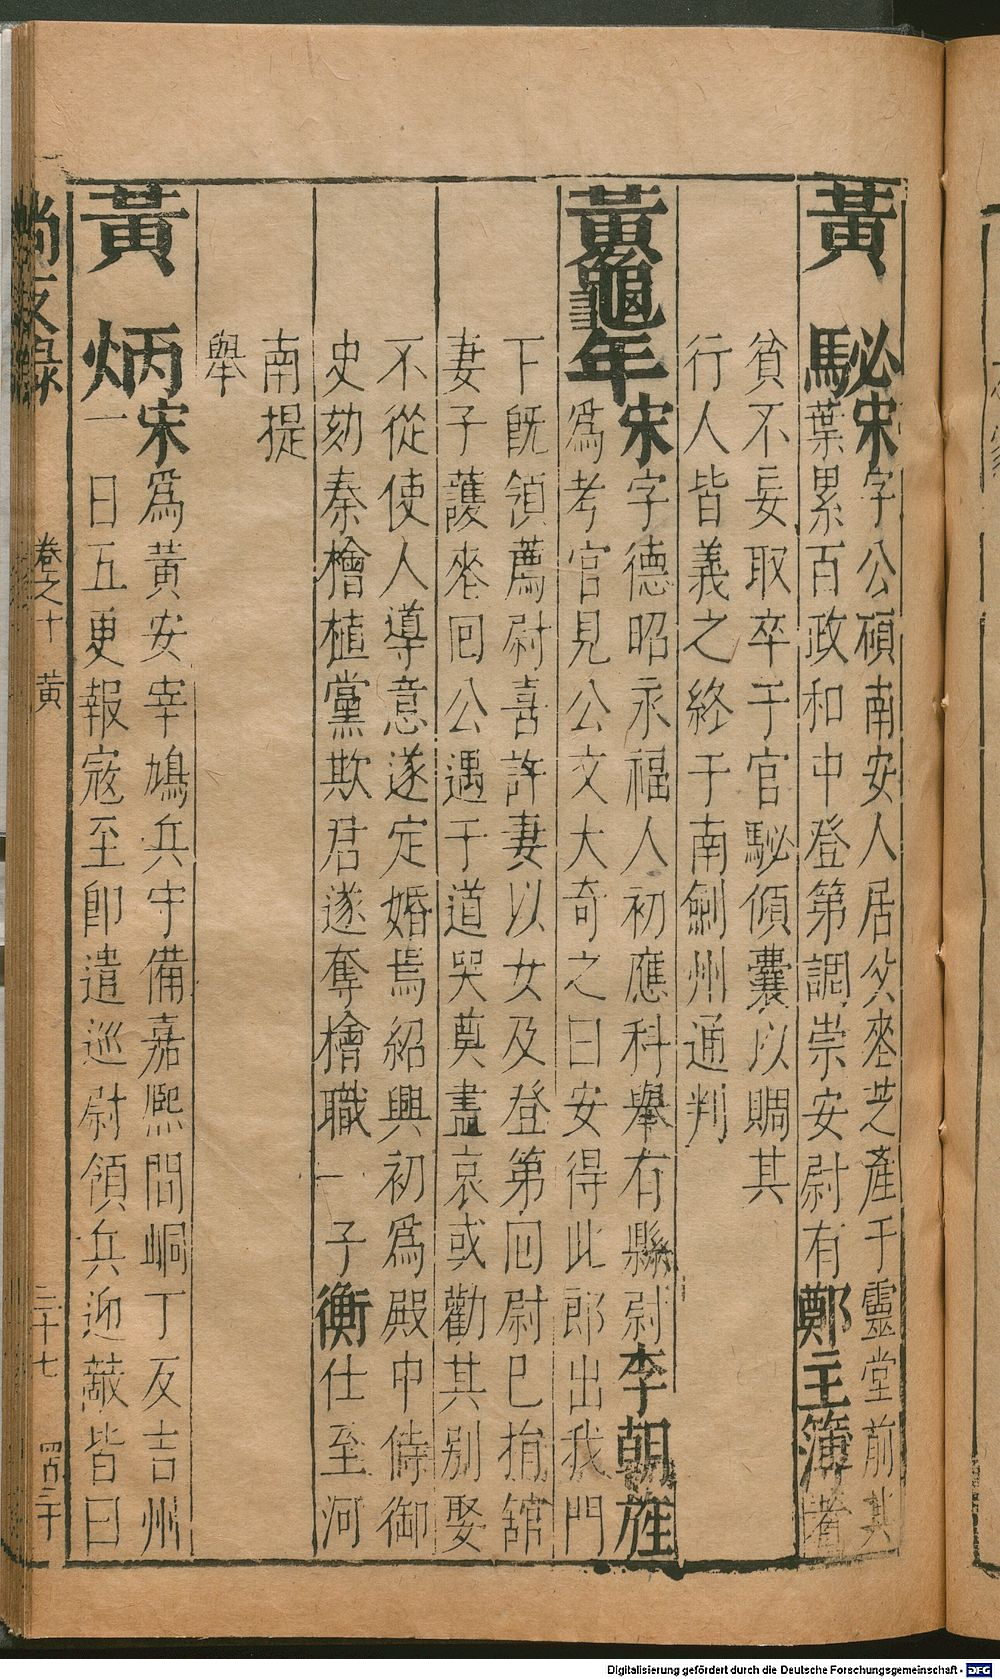 黃　駜宋字公碩南安人居父䘮芝產于靈堂前其
葉累百政和中登第調崇安尉有鄭主簿者
貧不妄取卒于官駜傾囊以賙其
行人皆義之終于南劍州通判
黃龜年宋字德昭永福人初應科舉有縣尉李朝旌
爲考官見公文大奇之曰安得此郎出我門
下旣領薦尉喜許妻以女及登第回尉巳捐舘
妻子護䘮回公遇于道哭奠盡哀或勸其別娶
不從使人導意遂定婚焉紹興初爲殿中侍御
史劾秦檜植黨欺君遂奪檜職一子衡仕至河
南提
舉
黃　炳宋爲黃安宰鳩兵守備嘉熙間峒丁反吉州
一日五更報寇至卽遣巡尉領兵迎敵皆曰
尚友録　卷之十　黃　二十七　四百三十
Digitalisierung gefördert durch die Deutsche Forschungsgemeinschaft - DFG